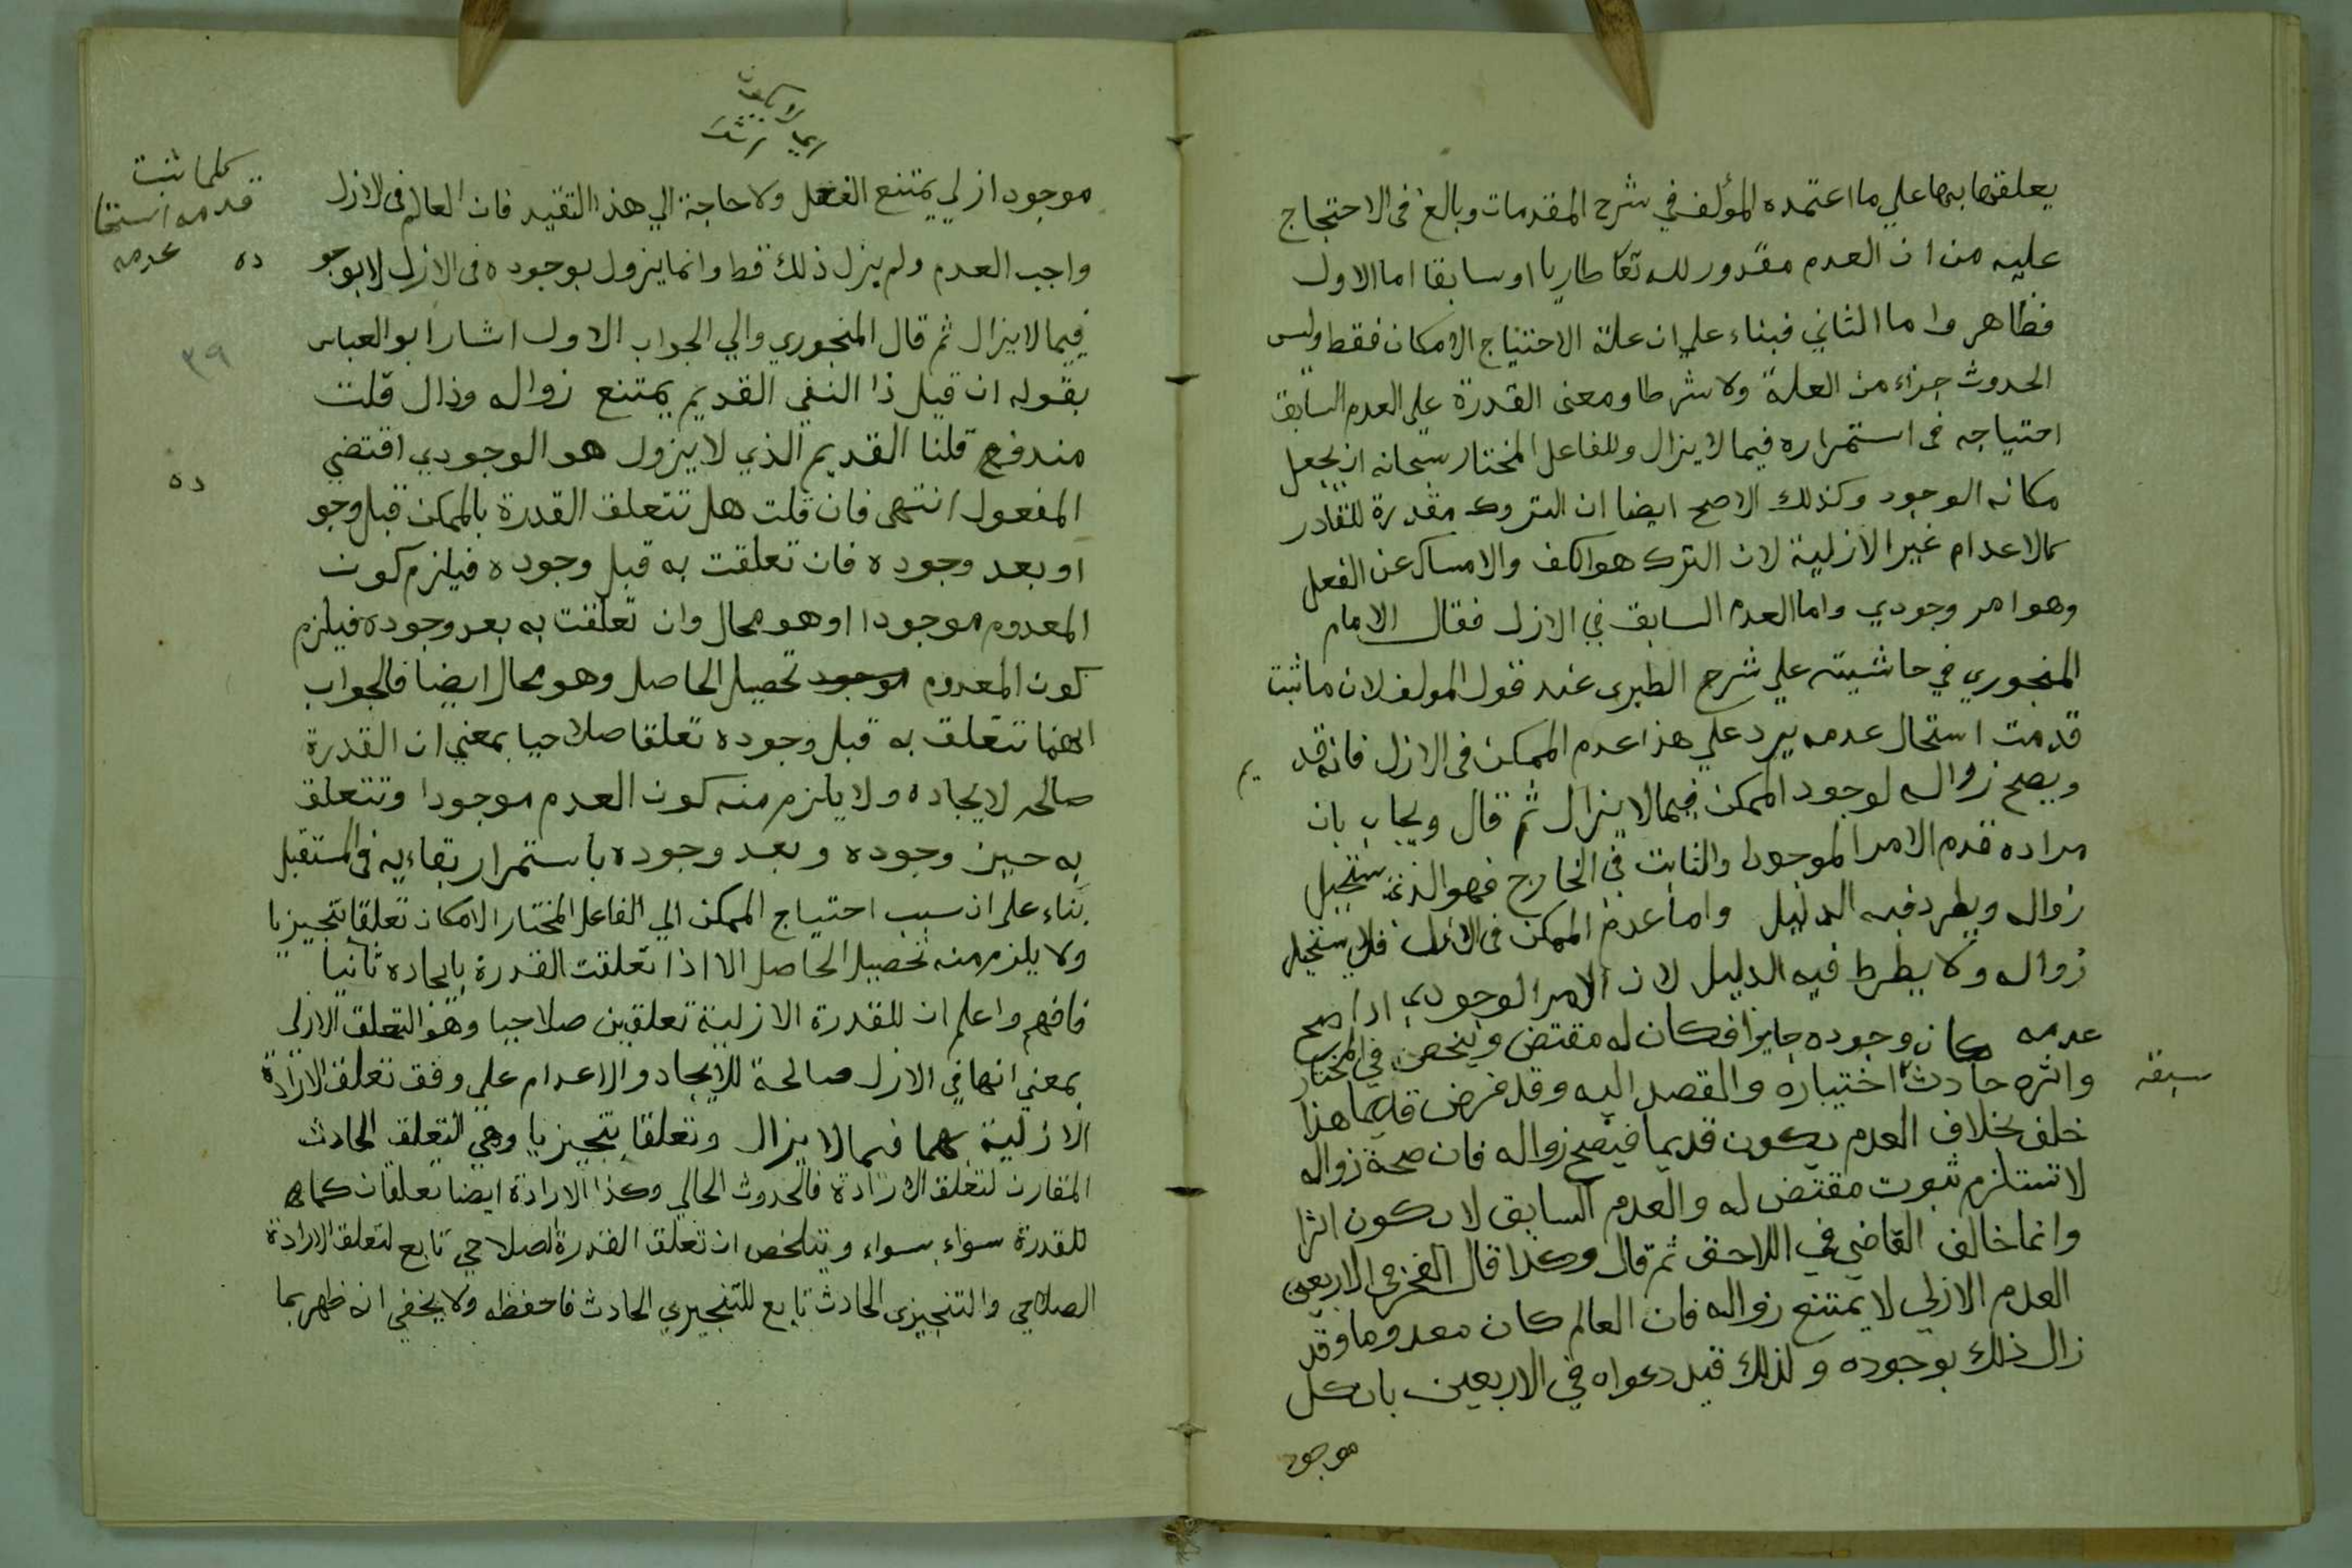 يعلقها بها علي ما اعتمده المؤلف في شرح المقدمات وبالغ في الاحتجاج
عليه من ان العدم مقدور لله تعا طاريا او سابقا اما الاول
فظاهر واما الثاني فبناء علي ان علة الاحتياج الامكان فقط وليس
الحدوث جزاء من العلة ولا شرطا ومعنى القدرة علي العدم السابق
احتياجه في استمراره فيما لا يزال وللفاعل المختار سبحانه ان يجعل
مكانه الوجود وكذلك الاصح ايضا ان التروك مقدرة للقادر
كالاعدام غير الازلية لان الترك هو الكف والامساك عن الفعل
وهو امر وجودي واما العدم السابق في الازل فقال الامام
المنجوري في حاشيته علي شرح الطبرى عند قول المولف لان ما ثبت
قدمت استحال عدمه يرد علي هذا عدم الممكن في الازل فانه قد
يم
ويصح زواله لوجود الممكن فيما لا يزال ثم قال ويجاب بان
مراده قدم الامر الموجود والثابت في الخارج فهو الذي يستحيل
زواله ويطرد فيه الدليل واما عدم الممكن في الازل فلا يستحيل
زواله ولا يطرط فيه الدليل لان الامر الوجودي اذا صح
عدمه كان وجوده جايزا فكان له مقتض وينحصر في المختار
واثره حادث اختياره والقصد اليه وقد فرض قديما هذا
سبقه
خلف بخلاف العدم يكون قديما فيصح زواله فان صحة زواله
لا تستلزم ثبوت مقتض له والعدم السابق لا يكون اثرا
وانما خالف القاضي في اللاحق ثم قال وكذا قال الفخر في الاربعين
العدم الازلي لا يمتنع زواله فان العالم كان معدوما وقد
زال ذلك بوجوده ولذلك قيد دعواه في الاربعين بان كل
موجود
موجود ازلي يمتنع ولا حاجة الي هذا التقيد فان العالم في الازل
كلما ثبت
قدمه استحا
عدمه
واجب العدم ولم يزل ذلك قط وانما يزول بوجوده في الازل لا بوجو
ده
فيما لا يزال ثم قال المنجوري والي الجواب الاول اشار ابو العباس
٣٩
بقوله ان قيل ذا النفي القديم يمتنع زواله وذال قلت
مندفع قلنا القديم الذي لا يزول هو الوجودي اقتضي
المفعول انتهى فان قلت هل تتعلق القدرة بالممكن قبل وجو
ده
او بعد وجوده فان تعلقت به قبل وجوده فيلزم كون
المعدوم موجودا وهو محال وان تعلقت به بعد وجوده فيلزم
كون المعدوم موجود تحصيل الحاصل وهو محال ايضا فالجواب
انها تتعلق به قبل وجوده تعلقا صلاحيا بمعني ان القدرة
صالحه لايجاده ولا يلزم منه كون العدم موجودا وتتعلق
به حين وجوده وبعد وجوده باستمرار بقاءيه في المستقبل
بناء علي ان سبب احتياج الممكن الي الفاعل المختار الامكان تعلقا تنجيزيا
ولا يلزم منه تحصيل الحاصل الا اذا تعلقت القدرة بايجاده ثانيا
فافهم واعلم ان للقدرة الازلية تعلقين صلاحيا وهو التعلق الازلي
بمعني انها في الازل صالحة للايجاد والاعدام علي وفق تعلق الارادة
الازلية بهما فيما لا يزال وتعلقا تنجيزيا وهي التعلق الحادث
المقارن لتعلق الارادة فالحدوث الحالي وكذا الارادة ايضا تعلقان كما هو
للقدرة سواء بسواء ويتلخص ان تعلق القدرة الصلاحي تابع لتعلق الارادة
الصلاحي والتنجيزي الحادث تابع للتنجيزي الحادث فاحفظه ولا يخفي انه ظهر بما